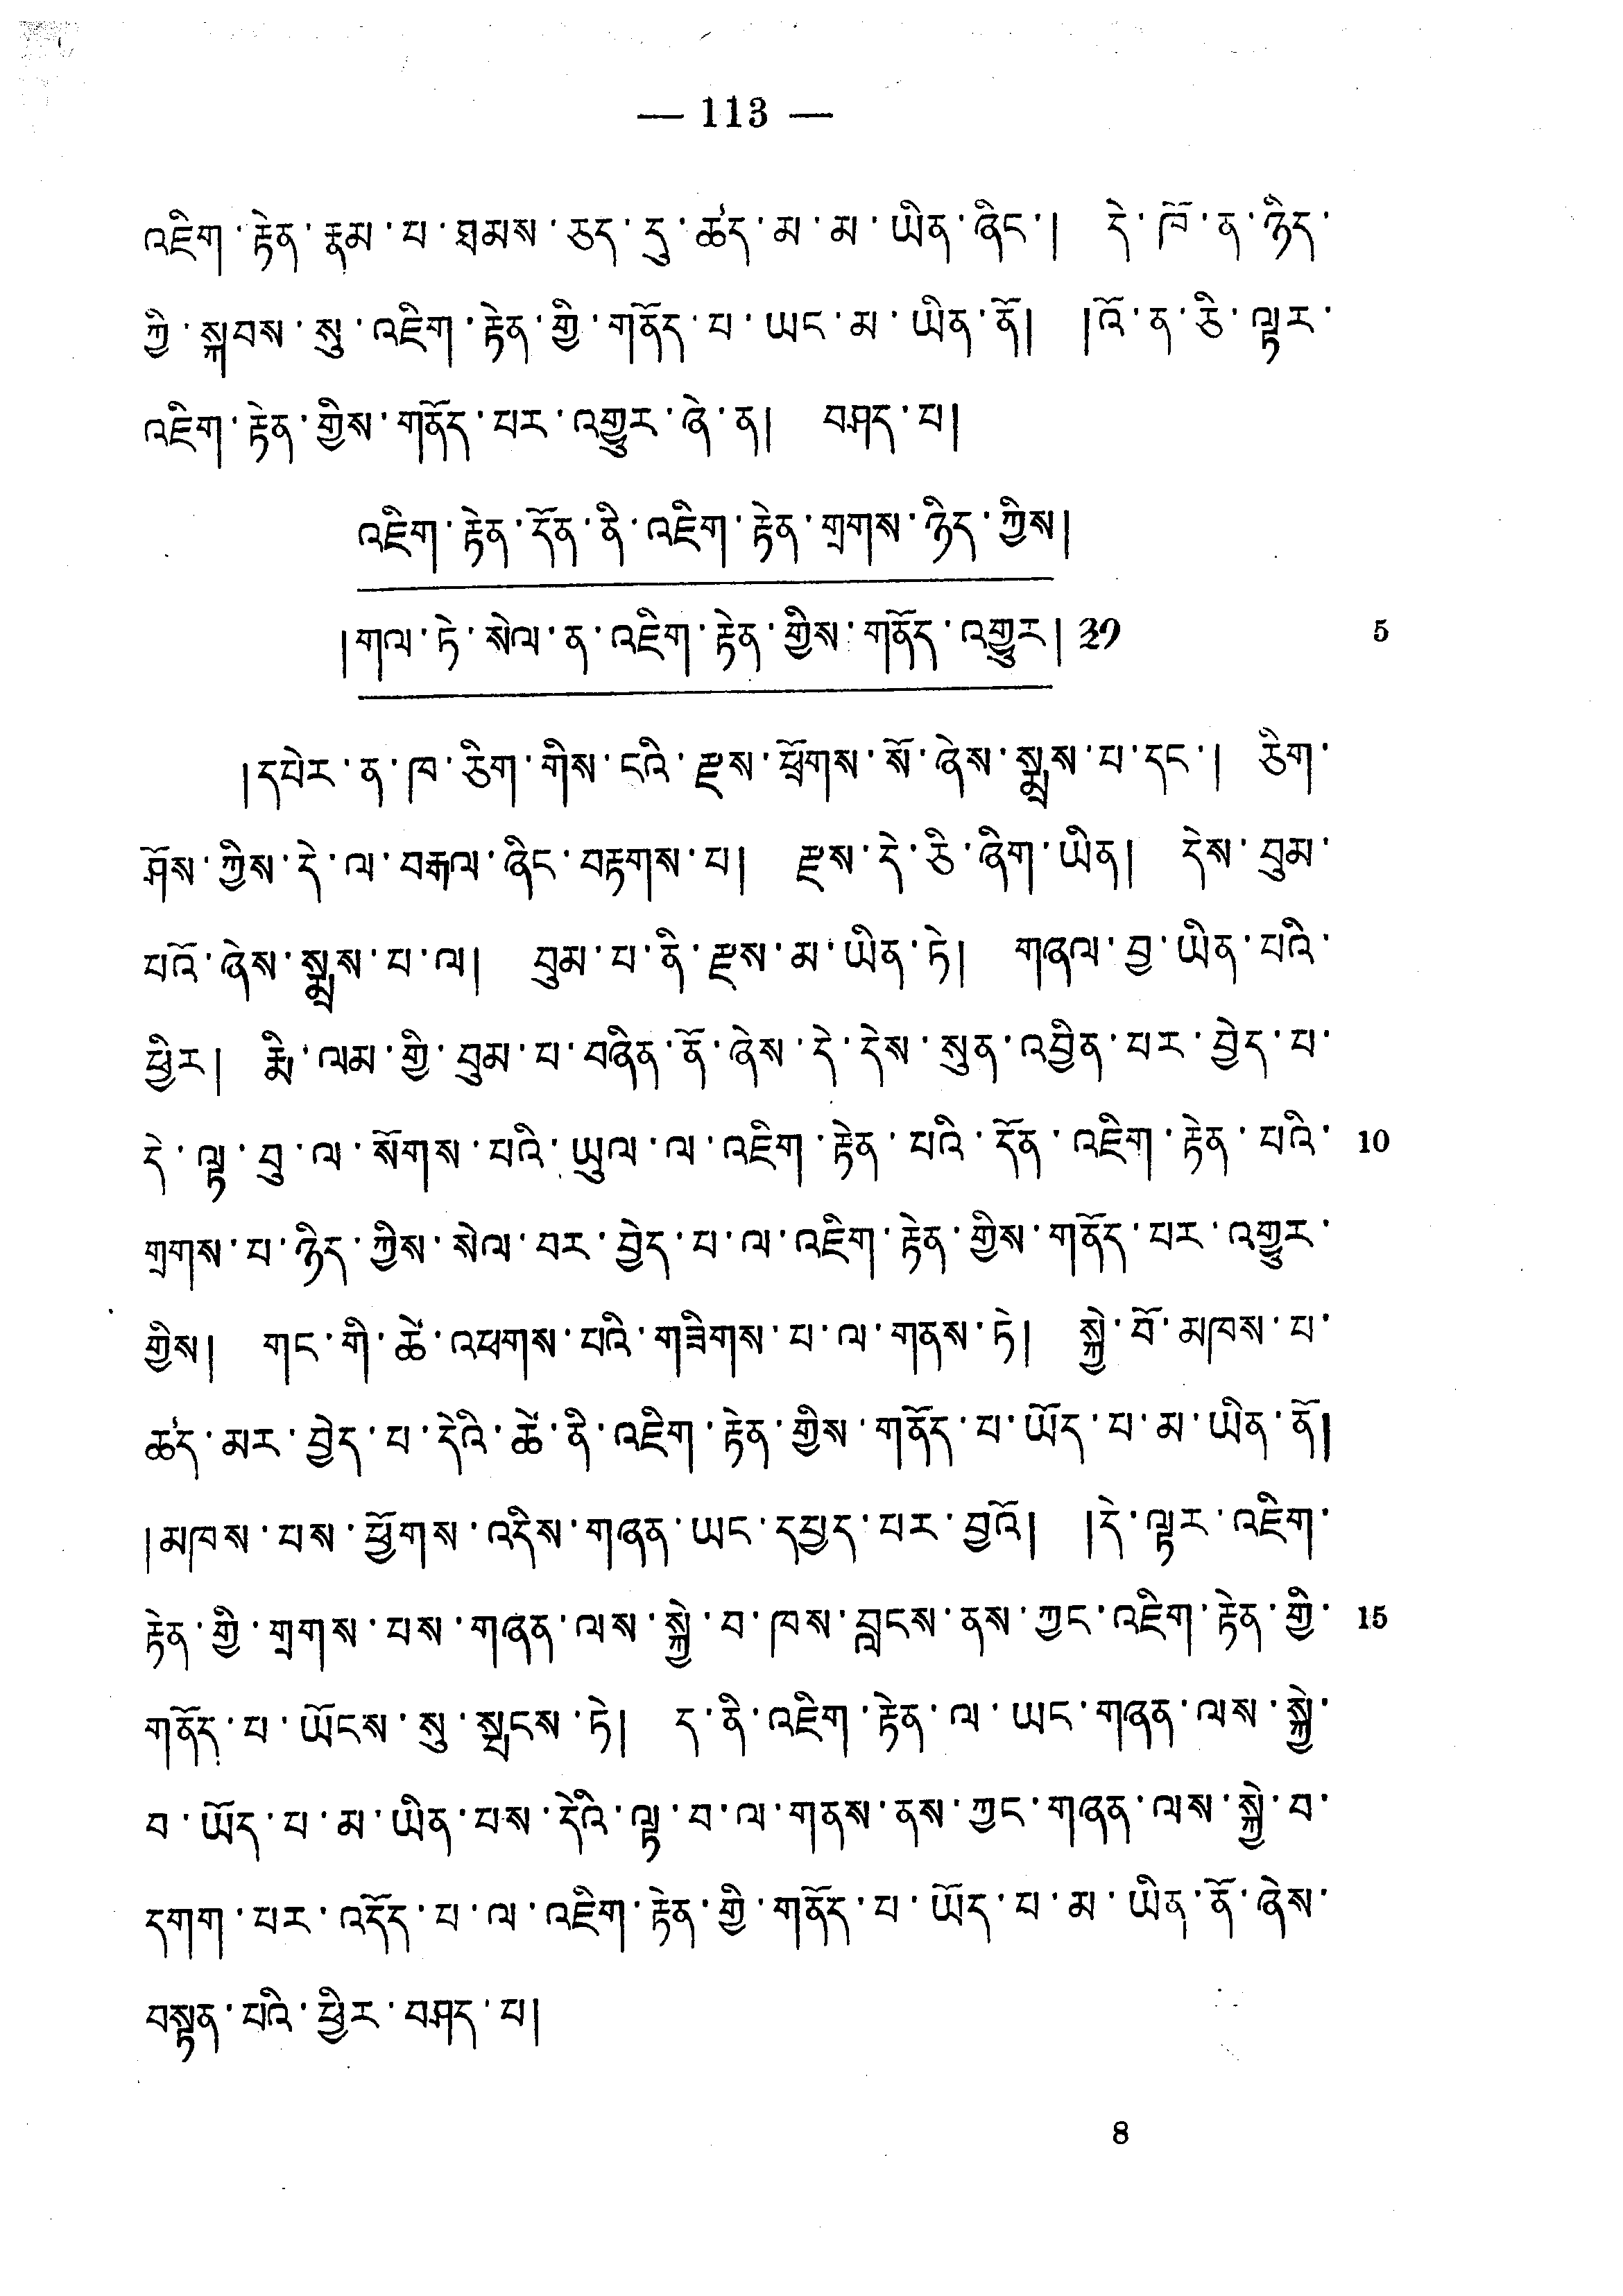 — 113 —
འཇིག་རྟེན་རྣམ་པ་ཐམས་ཅད་དུ་ཚད་མ་མ་ཡིན་ཞིང་། དེ་ཁོ་ན་ཉིད་
ཀྱི་སྐབས་སུ་འཇིག་རྟེན་གྱི་གནོད་པ་ཡང་མ་ཡིན་ནོ། །འོ་ན་ཅི་ལྟར་
འཇིག་རྟེན་གྱིས་གནོད་པར་འགྱུར་ཞེ་ན། བཤད་པ།
འཇིག་རྟེན་དོན་ནི་འཇིག་རྟེན་གྲགས་ཉིད་ཀྱིས།
།གལ་ཏེ་སེལ་ན་འཇིག་རྟེན་གྱིས་གནོད་འགྱུར། ༣༡ 5
།དཔེར་ན་ཁ་ཅིག་གིས་ངའི་རྫས་ཕྲོགས་སོ་ཞེས་སྨྲས་པ་དང་། ཅིག་
ཤོས་ཀྱིས་དེ་ལ་བརྒལ་ཞིང་བརྟགས་པ། རྫས་དེ་ཅི་ཞིག་ཡིན། དེས་བུམ་
པའོ་ཞེས་སྨྲས་པ་ལ། བུམ་པ་ནི་རྫས་མ་ཡིན་ཏེ། གཞལ་བྱ་ཡིན་པའི་
ཕྱིར། རྨི་ལམ་གྱི་བུམ་པ་བཞིན་ནོ་ཞེས་དེ་དེས་སུན་འབྱིན་པར་བྱེད་པ་
དེ་ལྟ་བུ་ལ་སོགས་པའི་ཡུལ་ལ་འཇིག་རྟེན་པའི་དོན་འཇིག་རྟེན་པའི་ 10
གྲགས་པ་ཉིད་ཀྱིས་སེལ་བར་བྱེད་པ་ལ་འཇིག་རྟེན་གྱིས་གནོད་པར་འགྱུར་
གྱིས། གང་གི་ཚེ་འཕགས་པའི་གཟིགས་པ་ལ་གནས་ཏེ། སྐྱེ་བོ་མཁས་པ་
ཚད་མར་བྱེད་པ་དེའི་ཚེ་ནི་འཇིག་རྟེན་གྱིས་གནོད་པ་ཡོད་པ་མ་ཡིན་ནོ།
།མཁས་པས་ཕྱོགས་འདིས་གཞན་ཡང་དཔྱད་པར་བྱའོ། །དེ་ལྟར་འཇིག་
རྟེན་གྱི་གྲགས་པས་གཞན་ལས་སྐྱེ་བ་ཁས་བླངས་ནས་ཀྱང་འཇིག་རྟེན་གྱི་ 15
གནོད་པ་ཡོངས་སུ་སྤངས་ཏེ། ད་ནི་འཇིག་རྟེན་ལ་ཡང་གཞན་ལས་སྐྱེ་
བ་ཡོད་པ་མ་ཡིན་པས་དེའི་ལྟ་བ་ལ་གནས་ནས་ཀྱང་གཞན་ལས་སྐྱེ་བ་
དགག་པར་འདོད་པ་ལ་འཇིག་རྟེན་གྱི་གནོད་པ་ཡོད་པ་མ་ཡིན་ནོ་ཞེས་
བསྟན་པའི་ཕྱིར་བཤད་པ།
8